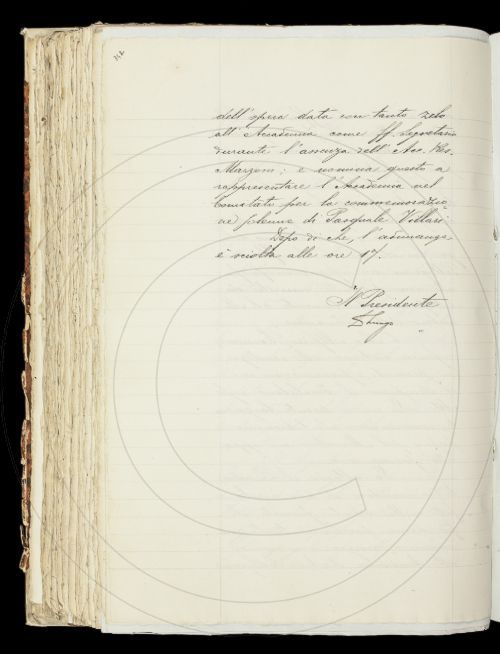 342
dell'opera data con tanto zelo
all'Accademia come ff. Segretario
durante l'assenza dell'Acc. Res.
Marzoni; e nomina questo a
rappresentare l'Accademia nel
Comitato per la commemorazio-
ne solenne di Pasquale Villari.
Dopo di che, l'adunanza
è sciolta alle ore 17.
Il Presidente